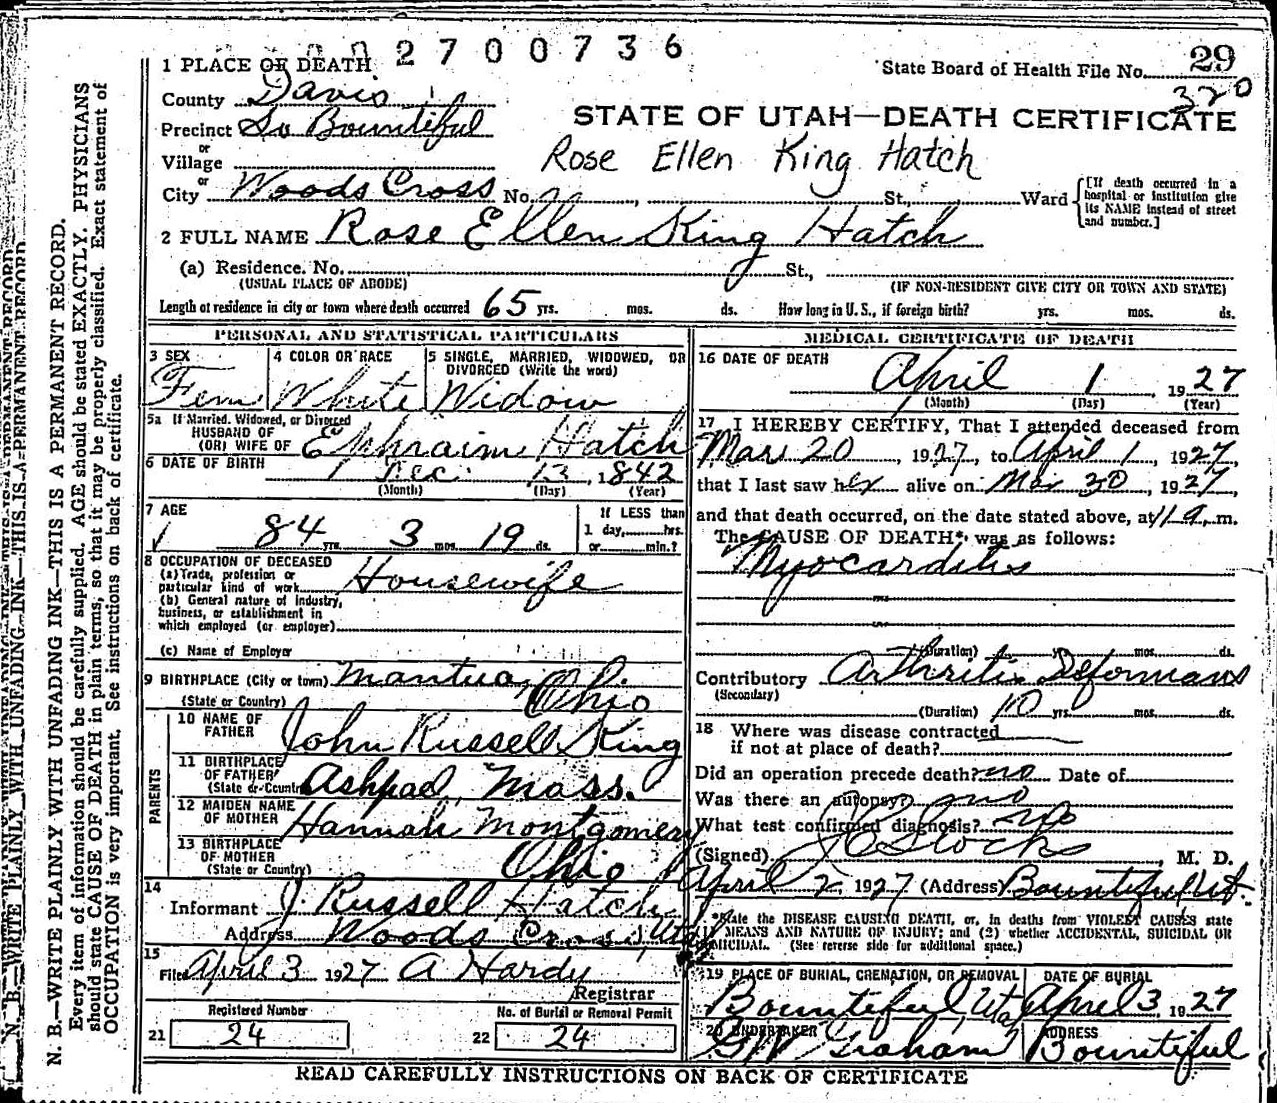 2700736
29
1 PLACE OF DEATH
State Board of Health File No.
320
County Davis
STATE OF UTAH—DEATH CERTIFICATE
Precinct So Bountiful
or
Village
Rose Ellen King Hatch
or
City Woods Cross No. , St., Ward
[If death occurred in a
hospital or institution give
its NAME instead of street
and number.]
2 FULL NAME Rose Ellen King Hatch
(a) Residence. No. St.,
(USUAL PLACE OF ABODE) (IF NON-RESIDENT GIVE CITY OR TOWN AND STATE)
Length of residence in city or town where death occurred 65 yrs. mos. ds. How long in U.S., if foreign birth? yrs. mos. ds.
PERSONAL AND STATISTICAL PARTICULARS
3 SEX
Fem
4 COLOR OR RACE
White
5 SINGLE, MARRIED, WIDOWED, OR
DIVORCED (Write the word)
Widow
5a If Married, Widowed, or Divorced
HUSBAND OF
(OR) WIFE OF Ephraim Hatch
6 DATE OF BIRTH Dec. 13, 1842
(Month) (Day) (Year)
7 AGE
84 yrs. 3 mos. 19 ds.
If LESS than
1 day, hrs.
or min.?
8 OCCUPATION OF DECEASED
(a) Trade, profession or
particular kind of work Housewife
(b) General nature of Industry,
business, or establishment in
which employed (or employer)
(c) Name of Employer
9 BIRTHPLACE (City or town) Mantua,
(State or Country) Ohio
PARENTS
10 NAME OF
FATHER John Russell King
11 BIRTHPLACE
OF FATHER
(State or Country) Ashpad, Mass.
12 MAIDEN NAME
OF MOTHER Hannah Montgomery
13 BIRTHPLACE
OF MOTHER
(State or Country) Ohio
14
Informant J. Russell Hatch
Address Woods Cross, Utah
15
Filed April 3 1927 A Hardy
Registrar
Registered Number
21 24
No. of Burial or Removal Permit
22 24
MEDICAL CERTIFICATE OF DEATH
16 DATE OF DEATH
April 1, 1927
(Month) (Day) (Year)
17 I HEREBY CERTIFY, That I attended deceased from
Mar 20, 1927, to April 1, 1927,
that I last saw her alive on Mar 30, 1927,
and that death occurred, on the date stated above, at 11 a. m.
The CAUSE OF DEATH* was as follows:
Myocarditis
(Duration) yrs. mos. ds.
Contributory Arthritis Deformans
(Secondary)
(Duration) 10 yrs. mos. ds.
18 Where was disease contracted
if not at place of death?
Did an operation precede death? no Date of
Was there an autopsy? no
What test confirmed diagnosis? no
(Signed) J C Stocks, M. D.
April 2, 1927 (Address) Bountiful, Ut.
*State the DISEASE CAUSING DEATH, or, in deaths from VIOLENT CAUSES state
(1) MEANS AND NATURE OF INJURY; and (2) whether ACCIDENTAL, SUICIDAL OR
HOMICIDAL. (See reverse side for additional space.)
19 PLACE OF BURIAL, CREMATION, OR REMOVAL
Bountiful, Utah
DATE OF BURIAL
April 3, 1927
20 UNDERTAKER
G W Graham
ADDRESS
Bountiful
READ CAREFULLY INSTRUCTIONS ON BACK OF CERTIFICATE
N. B.—WRITE PLAINLY WITH UNFADING INK—THIS IS A PERMANENT RECORD.
Every item of information should be carefully supplied. AGE should be stated EXACTLY. PHYSICIANS
should state CAUSE OF DEATH in plain terms, so that it may be properly classified. Exact statement of
OCCUPATION is very important. See instructions on back of certificate.
N. B.—WRITE PLAINLY WITH UNFADING INK—THIS IS A PERMANENT RECORD